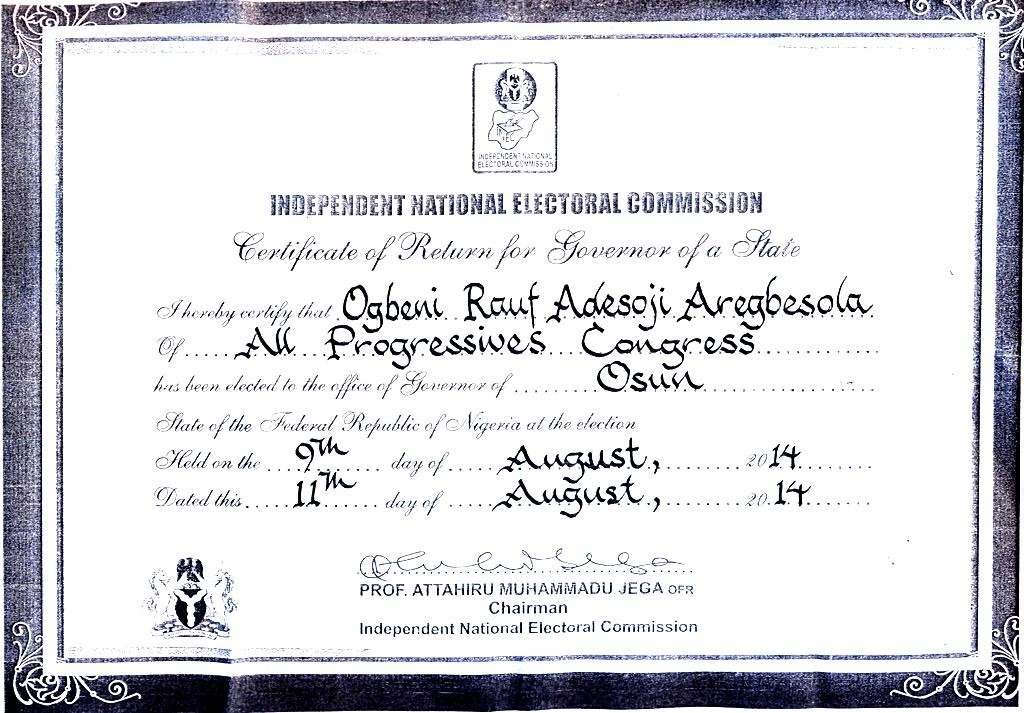 INEC
INDEPENDENT NATIONAL
ELECTORAL COMMISSION
INDEPENDENT NATIONAL ELECTORAL COMMISSION
Certificate of Return for Governor of a State
I hereby certify that Ogbeni Rauf Adesoji Aregbesola
Of All Progressives Congress
has been elected to the office of Governor of Osun
State of the Federal Republic of Nigeria at the election
Held on the 9th day of August, 2014
Dated this 11th day of August, 2014
PROF. ATTAHIRU MUHAMMADU JEGA OFR
Chairman
Independent National Electoral Commission